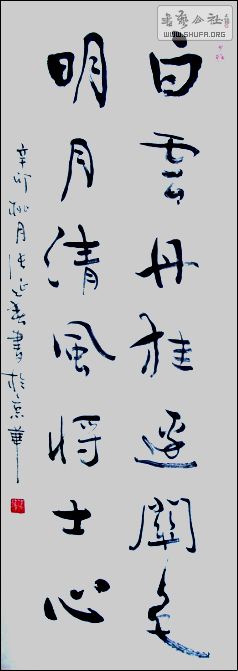 書藝公社
WWW.SHUFA.ORG
白雲丹桂邊關色
明月清風將士心
辛卯桃月書於京華